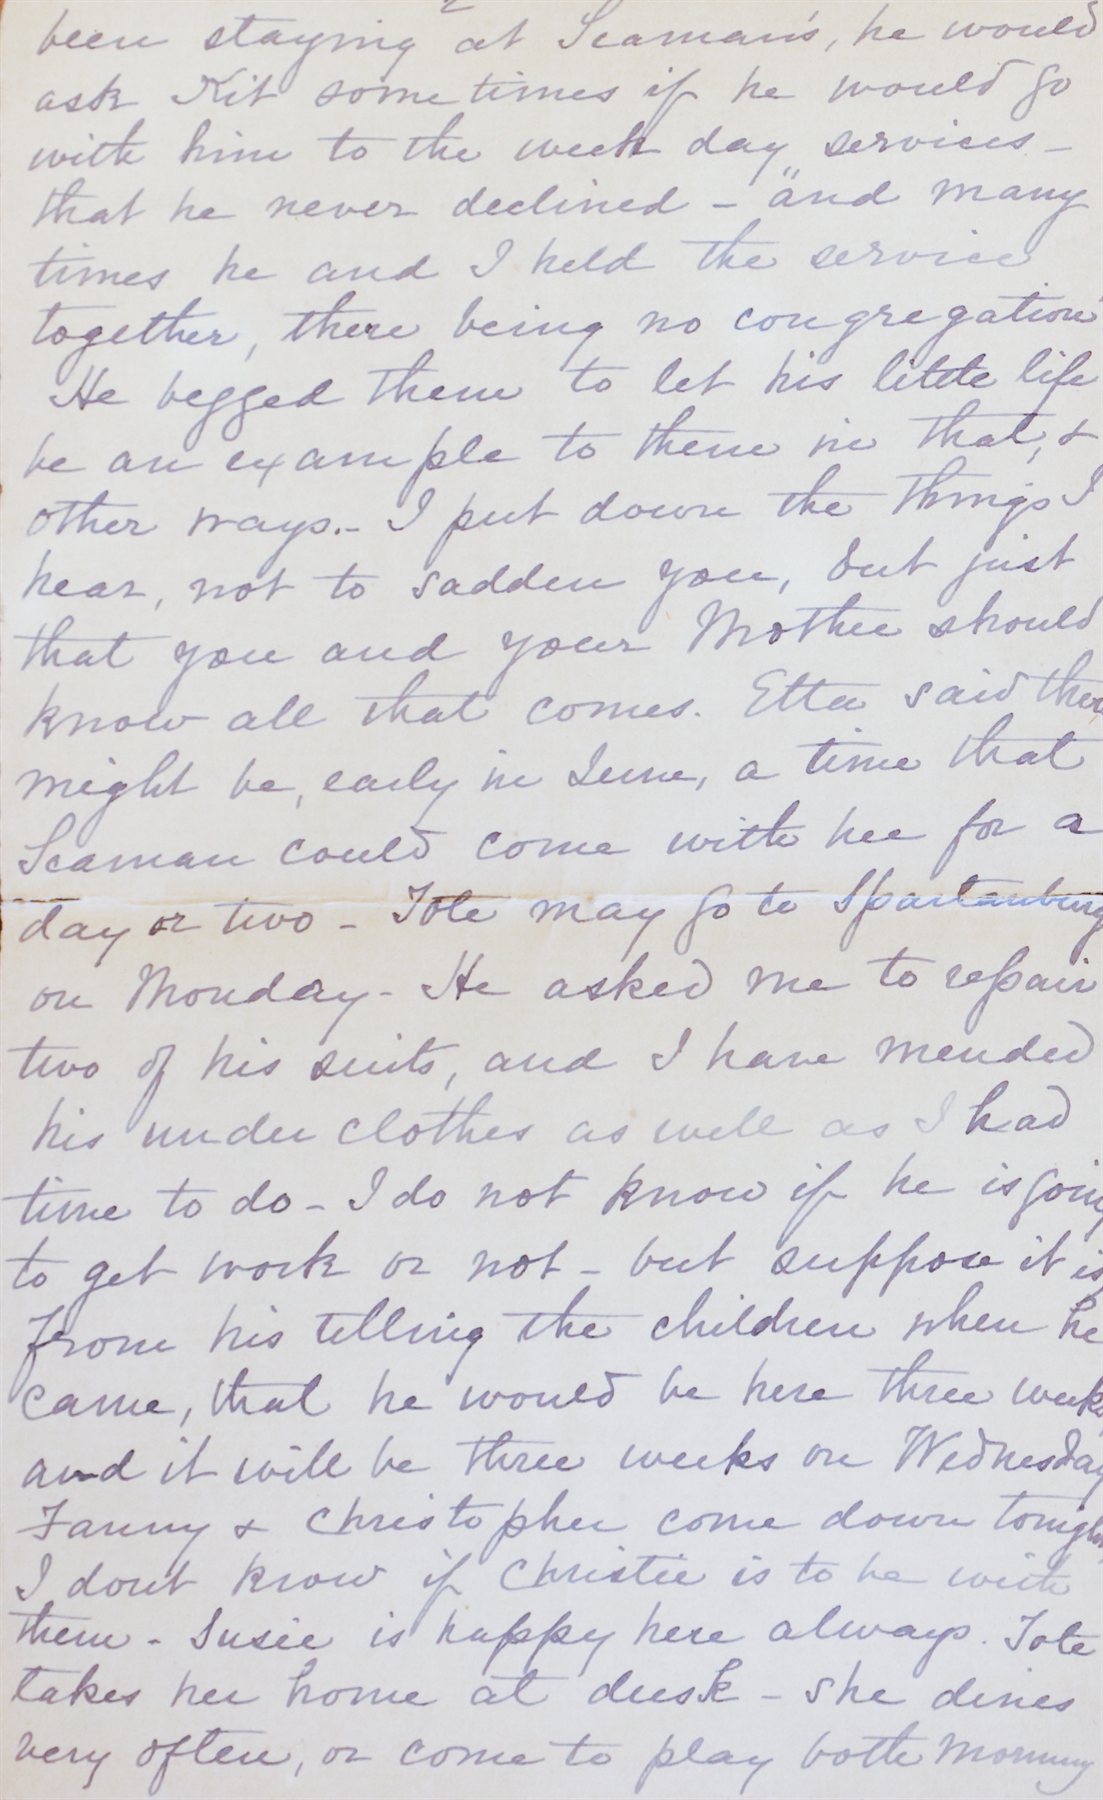 been staying at Seaman's, he would
ask Kit sometimes if he would go
with him to the week day services -
that he never declined - "and many
times he and I held the service
together, there being no congregation"
He begged them to let his little life
be an example to them in that, &
other ways. - I put down the things I
hear, not to sadden you, but just
that you and your Mother should
know all that comes. Etta said there
might be, early in June, a time that
Seaman could come with her for a
day or two - Tote may go to Spartanburg
on Monday - He asked me to repair
two of his suits, and I have mended
his under clothes as well as I had
time to do - I do not know if he is going
to get work or not - but suppose it is
from his telling the children when he
came, that he would be here three weeks
and it will be three weeks on Wednesday
Fanny & Christopher come down tonight,
I dont know if Christie is to be with
them - Susie is happy here always. Tote
takes her home at dusk - She dines
very often, or come to play both morning